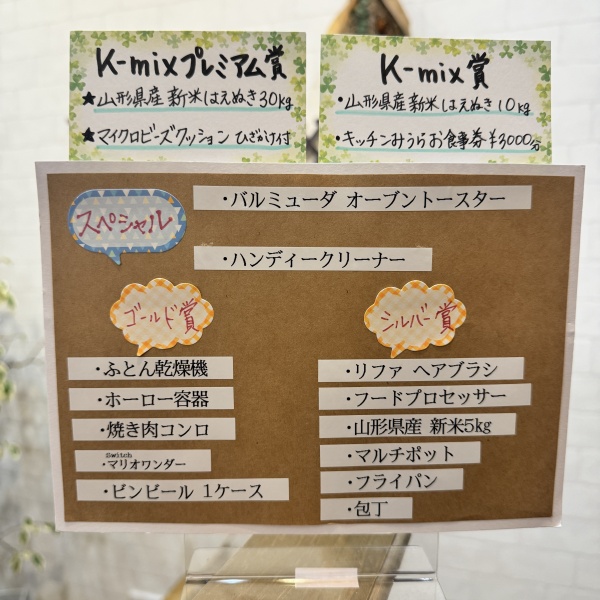 K-mixプレミアム賞
★山形県産 新米はえぬき30kg
★マイクロビーズクッション ひざかけ付
K-mix賞
・山形県産 新米はえぬき10kg
・キッチンみうらお食事券¥3000分
スペシャル
・バルミューダ オーブントースター
・ハンディークリーナー
ゴールド賞
・ふとん乾燥機
・ホーロー容器
・焼き肉コンロ
Switch
・マリオワンダー
・ビンビール 1ケース
シルバー賞
・リファ ヘアブラシ
・フードプロセッサー
・山形県産 新米5kg
・マルチポット
・フライパン
・包丁